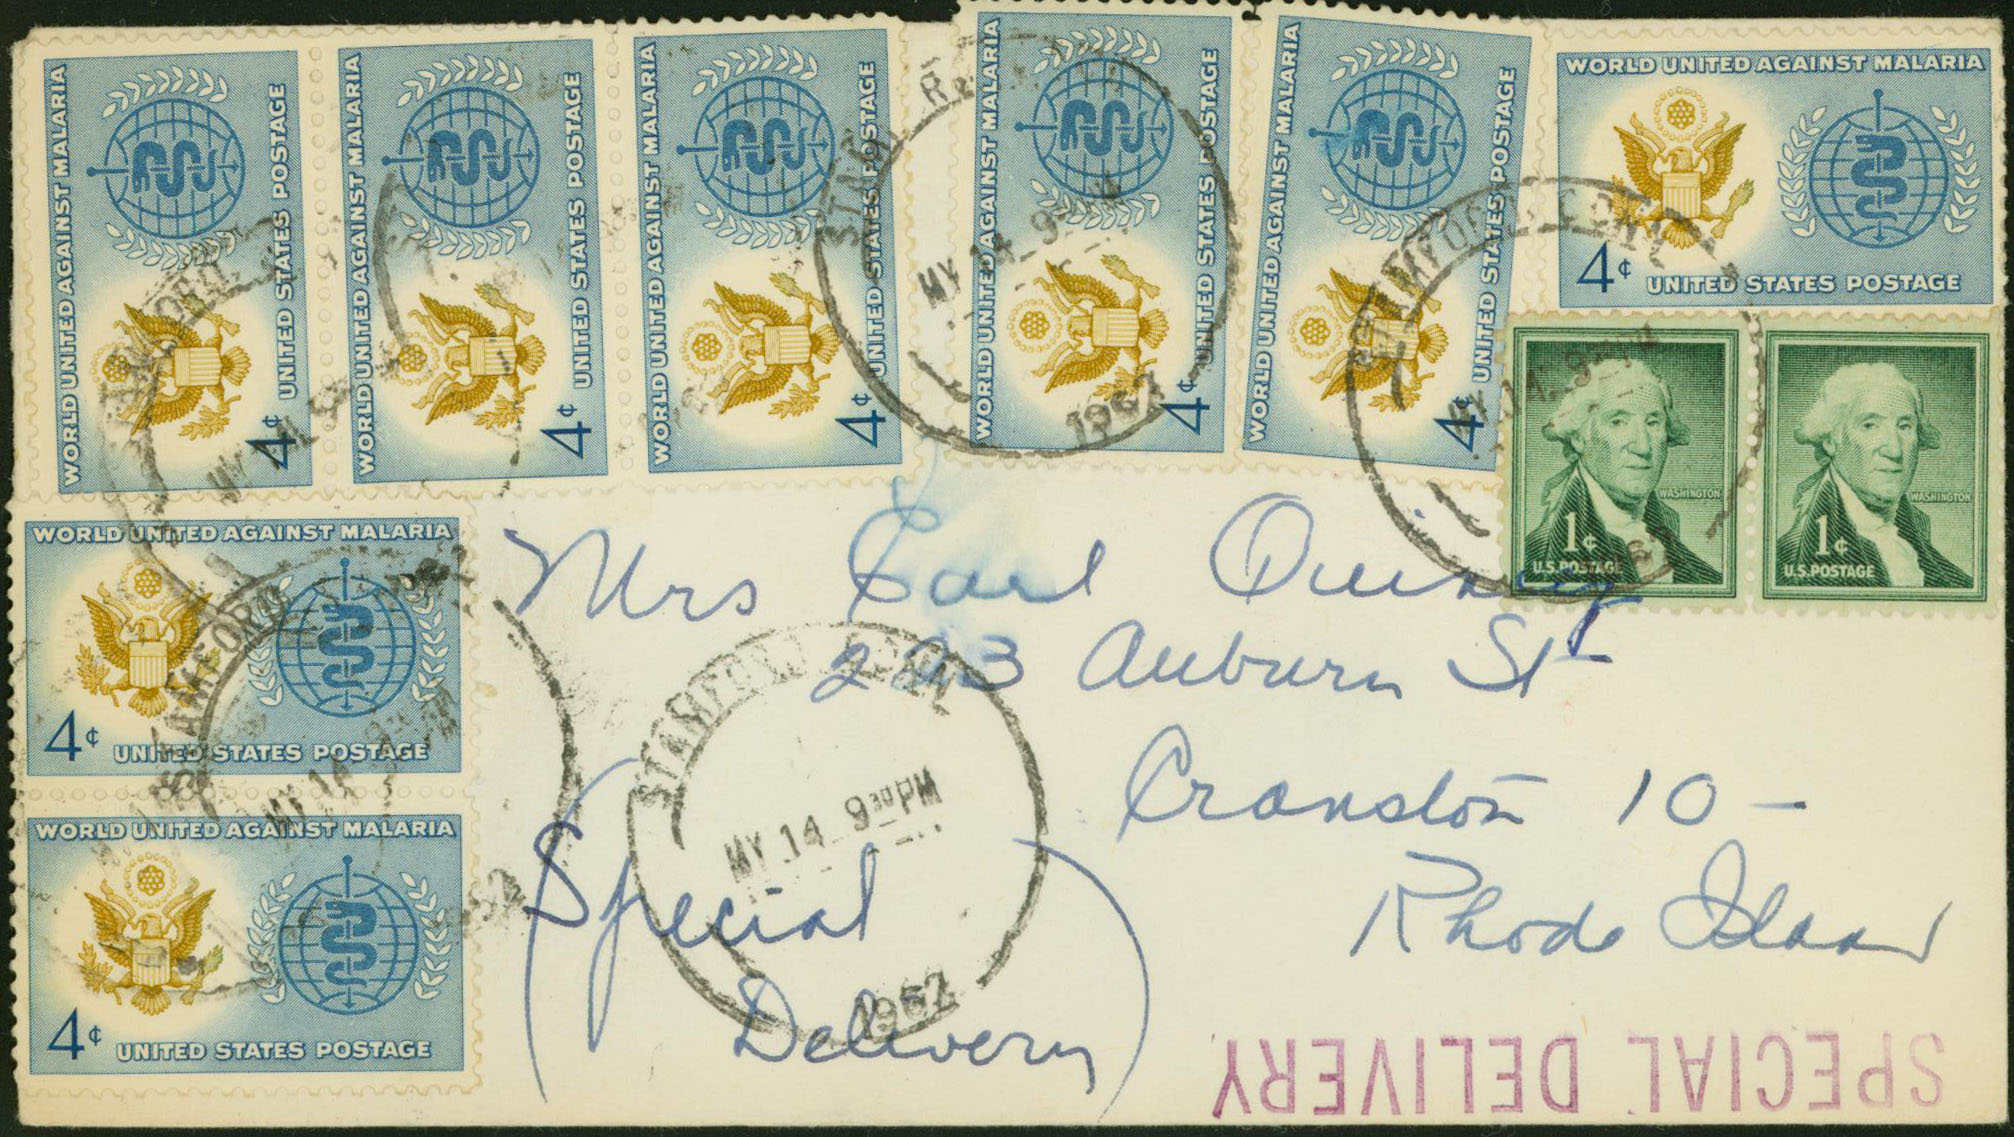 WORLD UNITED AGAINST MALARIA
4¢
UNITED STATES POSTAGE
WORLD UNITED AGAINST MALARIA
4¢
UNITED STATES POSTAGE
WORLD UNITED AGAINST MALARIA
4¢
UNITED STATES POSTAGE
WORLD UNITED AGAINST MALARIA
4¢
UNITED STATES POSTAGE
WORLD UNITED AGAINST MALARIA
4¢
UNITED STATES POSTAGE
WORLD UNITED AGAINST MALARIA
4¢ UNITED STATES POSTAGE
WASHINGTON
1¢
U.S. POSTAGE
WASHINGTON
1¢
U.S. POSTAGE
WORLD UNITED AGAINST MALARIA
4¢ UNITED STATES POSTAGE
WORLD UNITED AGAINST MALARIA
4¢ UNITED STATES POSTAGE
MY 14 9
1962
STAMFORD, CONN
MY 14 9
STAMFORD
MY 14
STAMFORD, CONN
MY 14 9 30 PM
1962
Mrs Carl Quincy
223 Auburn St
Cranston 10 -
Rhode Island
(Special
Delivery)
SPECIAL DELIVERY